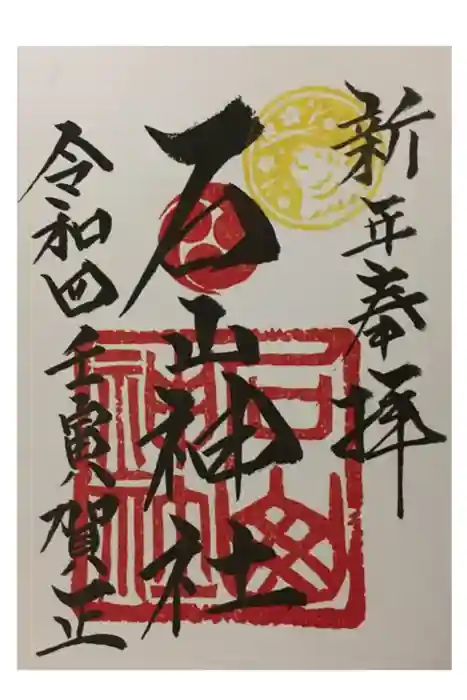 新年奉拝
石山神社
令和四壬寅賀正